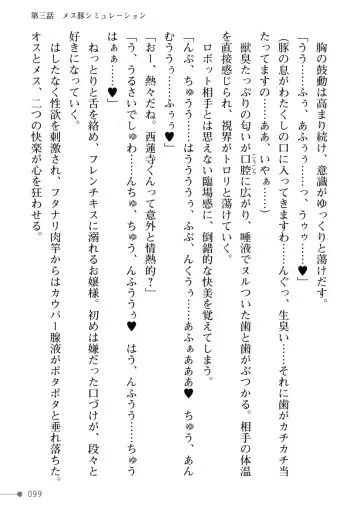 第三話　メス豚シミュレーション
胸の鼓動は高まり続け、意識がゆっくりと蕩けだす。
「はう……ふぅ、あふぅ……っ、うぅぅ……♥」
(豚の息がわたくしの口に入ってきますわ……んぐっ、生臭い……それに歯がカチカチ当
たってますの……ああ、いやぁ……)
獣臭たっぷりの匂いが口腔に広がり、唾液でヌルついた歯と歯がぶつかる。相手の体温
こうこう
を直接感じられ、視界がトロリと蕩けていく。
「んぷ、ちゅうう……はうううぅ、ふぶ、んくうぅ……あふぁぁあああ♥　ちゅう、あん
むちゅうぅ……ふぅぅ♥」
ロボット相手とは思えない臨場感に、倒錯的な快美を覚えてしまう。
「おー、熱々だね。西蓮寺くんって意外と情熱的？」
「う、うるさいでしゅわ……んちゅ、ちゅう、んふううぅ♥　はう、んふうう……ちゅう、
はぁぁ……♥」
ねっとりと舌を絡め、フレンチキスに溺れるお嬢様。初めは嫌だった口づけが、段々と
好きになっていく。
はしたなく性欲を刺激され、フタナリ肉竿からはカウパー腺液がポタポタと垂れ落ちた。
オスとメス、二つの快楽が心を狂わせる。
099